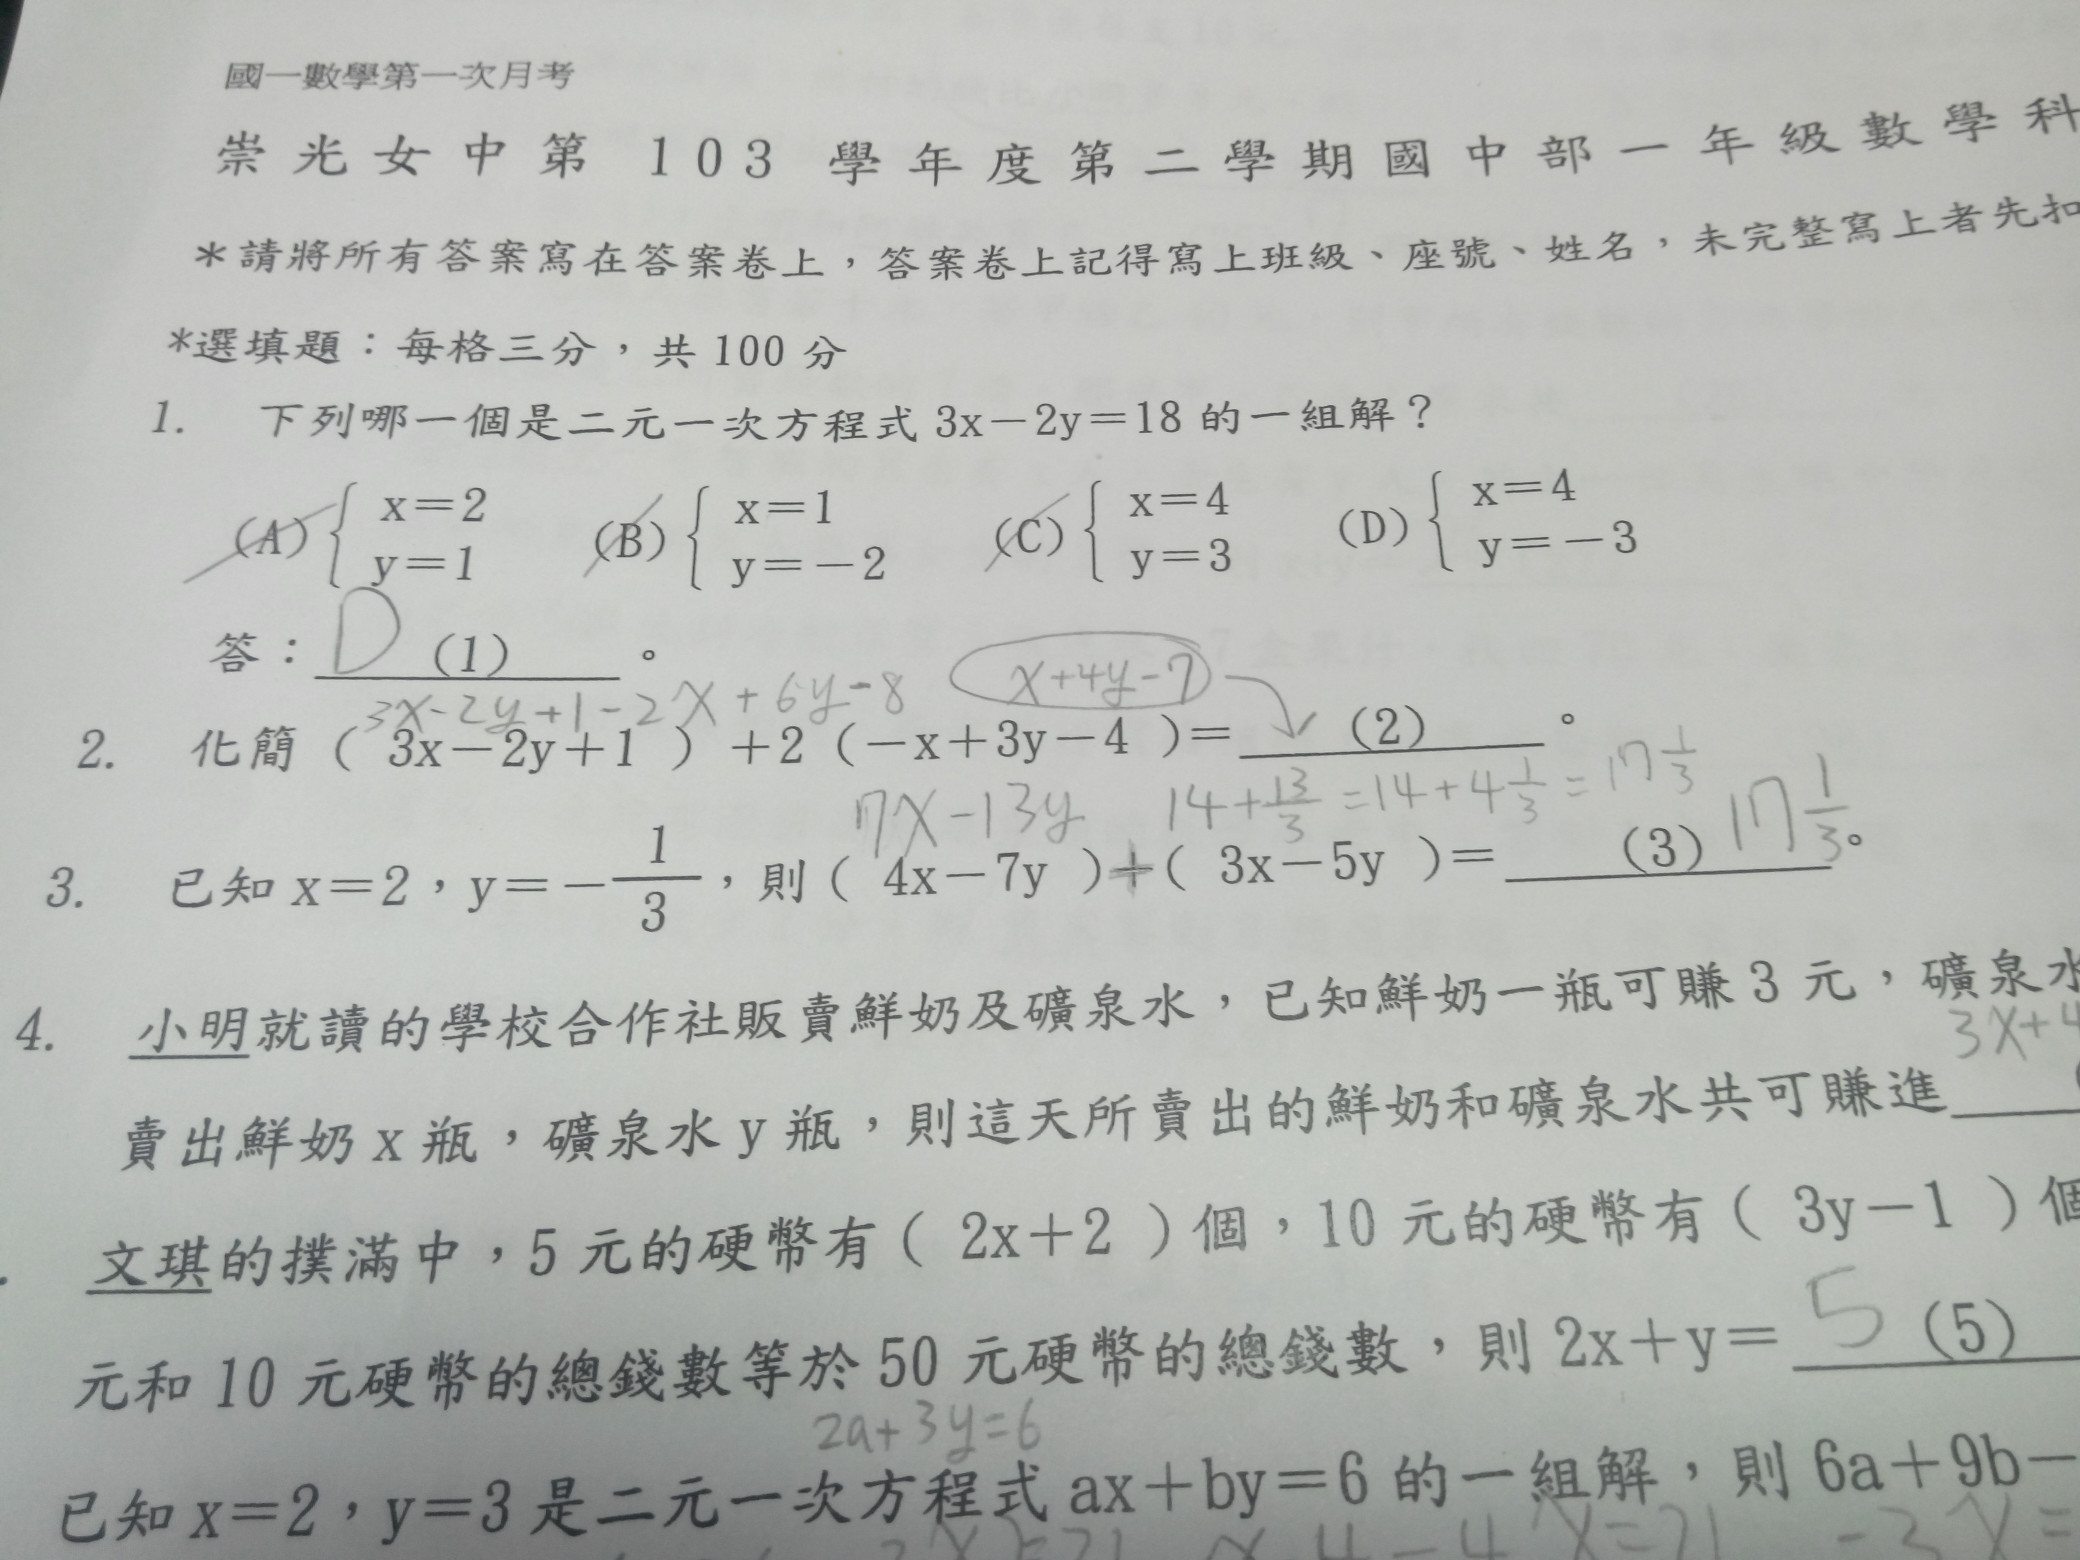 國一數學第一次月考
崇光女中第 103 學年度第二學期國中部一年級數學科
*請將所有答案寫在答案卷上，答案卷上記得寫上班級、座號、姓名，未完整寫上者先扣
*選填題：每格三分，共 100 分
1. 下列哪一個是二元一次方程式 3x－2y＝18 的一組解？
(A) { x＝2 (B) { x＝1 (C) { x＝4 (D) { x＝4
y＝1 y＝－2 y＝3 y＝－3
答：D (1) 。
3x-2y+1-2x+6y-8 x+4y-7
2. 化簡 ( 3x－2y＋1 ) ＋2 (－x＋3y－4 )＝ (2) 。
7x-13y 14+13/3=14+4 1/3=17 1/3
3. 已知 x＝2，y＝－1/3，則 ( 4x－7y )+( 3x－5y )＝ (3) 17 1/3 。
4. 小明就讀的學校合作社販賣鮮奶及礦泉水，已知鮮奶一瓶可賺 3 元，礦泉水
3x+4
賣出鮮奶 x 瓶，礦泉水 y 瓶，則這天所賣出的鮮奶和礦泉水共可賺進
文琪的撲滿中，5 元的硬幣有 ( 2x＋2 ) 個，10 元的硬幣有 ( 3y－1 ) 個
元和 10 元硬幣的總錢數等於 50 元硬幣的總錢數，則 2x＋y＝ 5 (5)
2a+3y=6
已知 x＝2，y＝3 是二元一次方程式 ax＋by＝6 的一組解，則 6a＋9b－